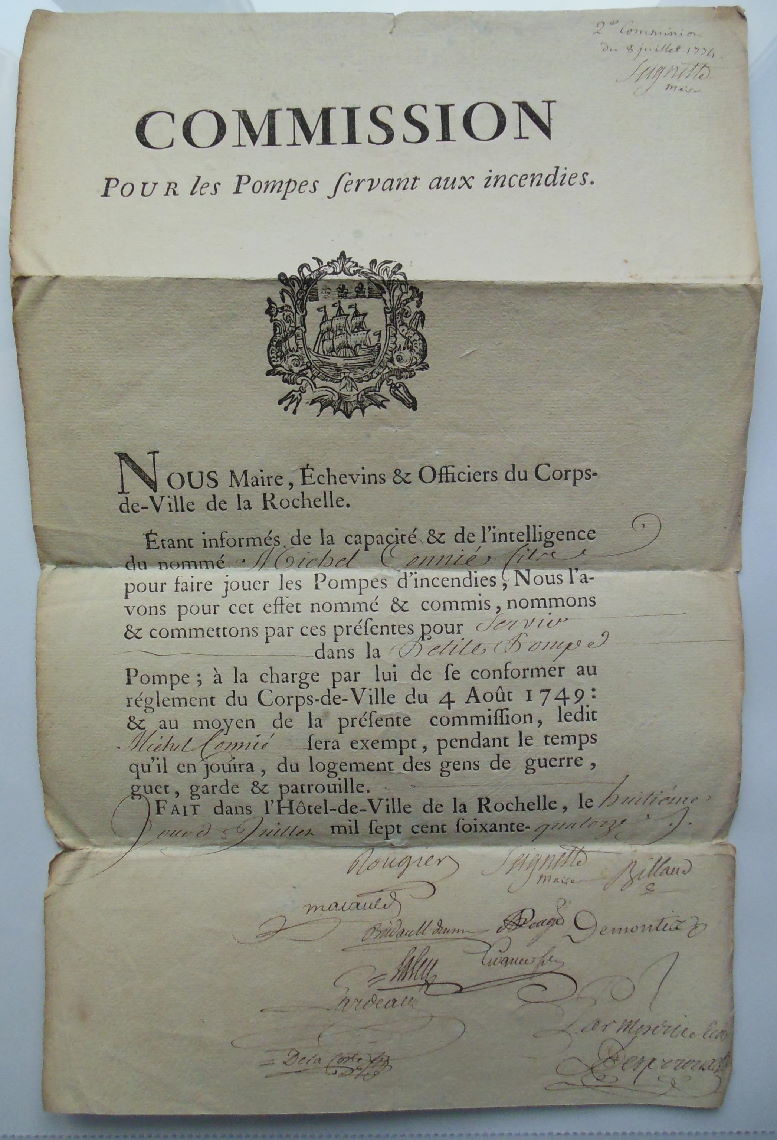 2.e Commission
du 8 juillet 1774
Seignette
maire
COMMISSION
POUR les Pompes ſervant aux incendies.
NOUS Maire, Échevins & Officiers du Corps-
de-Ville de la Rochelle.
Étant informés de la capacité & de l'intelligence
du nommé Michel Connié
pour faire jouer les Pompes d'incendies, Nous l'a-
vons pour cet effet nommé & commis, nommons
& commettons par ces préſentes pour Servir
dans la Petite Pompe
Pompe; à la charge par lui de ſe conformer au
réglement du Corps-de-Ville du 4 Août 1749:
& au moyen de la préſente commiſſion, ledit
Michel Connié ſera exempt, pendant le temps
qu'il en jouira, du logement des gens de guerre,
guet, garde & patrouille.
FAIT dans l'Hôtel-de-Ville de la Rochelle, le huitiéme
Jour de Juillet mil ſept cent ſoixante-quatorze
Rougier Seignette Billaud
maire
Demontis